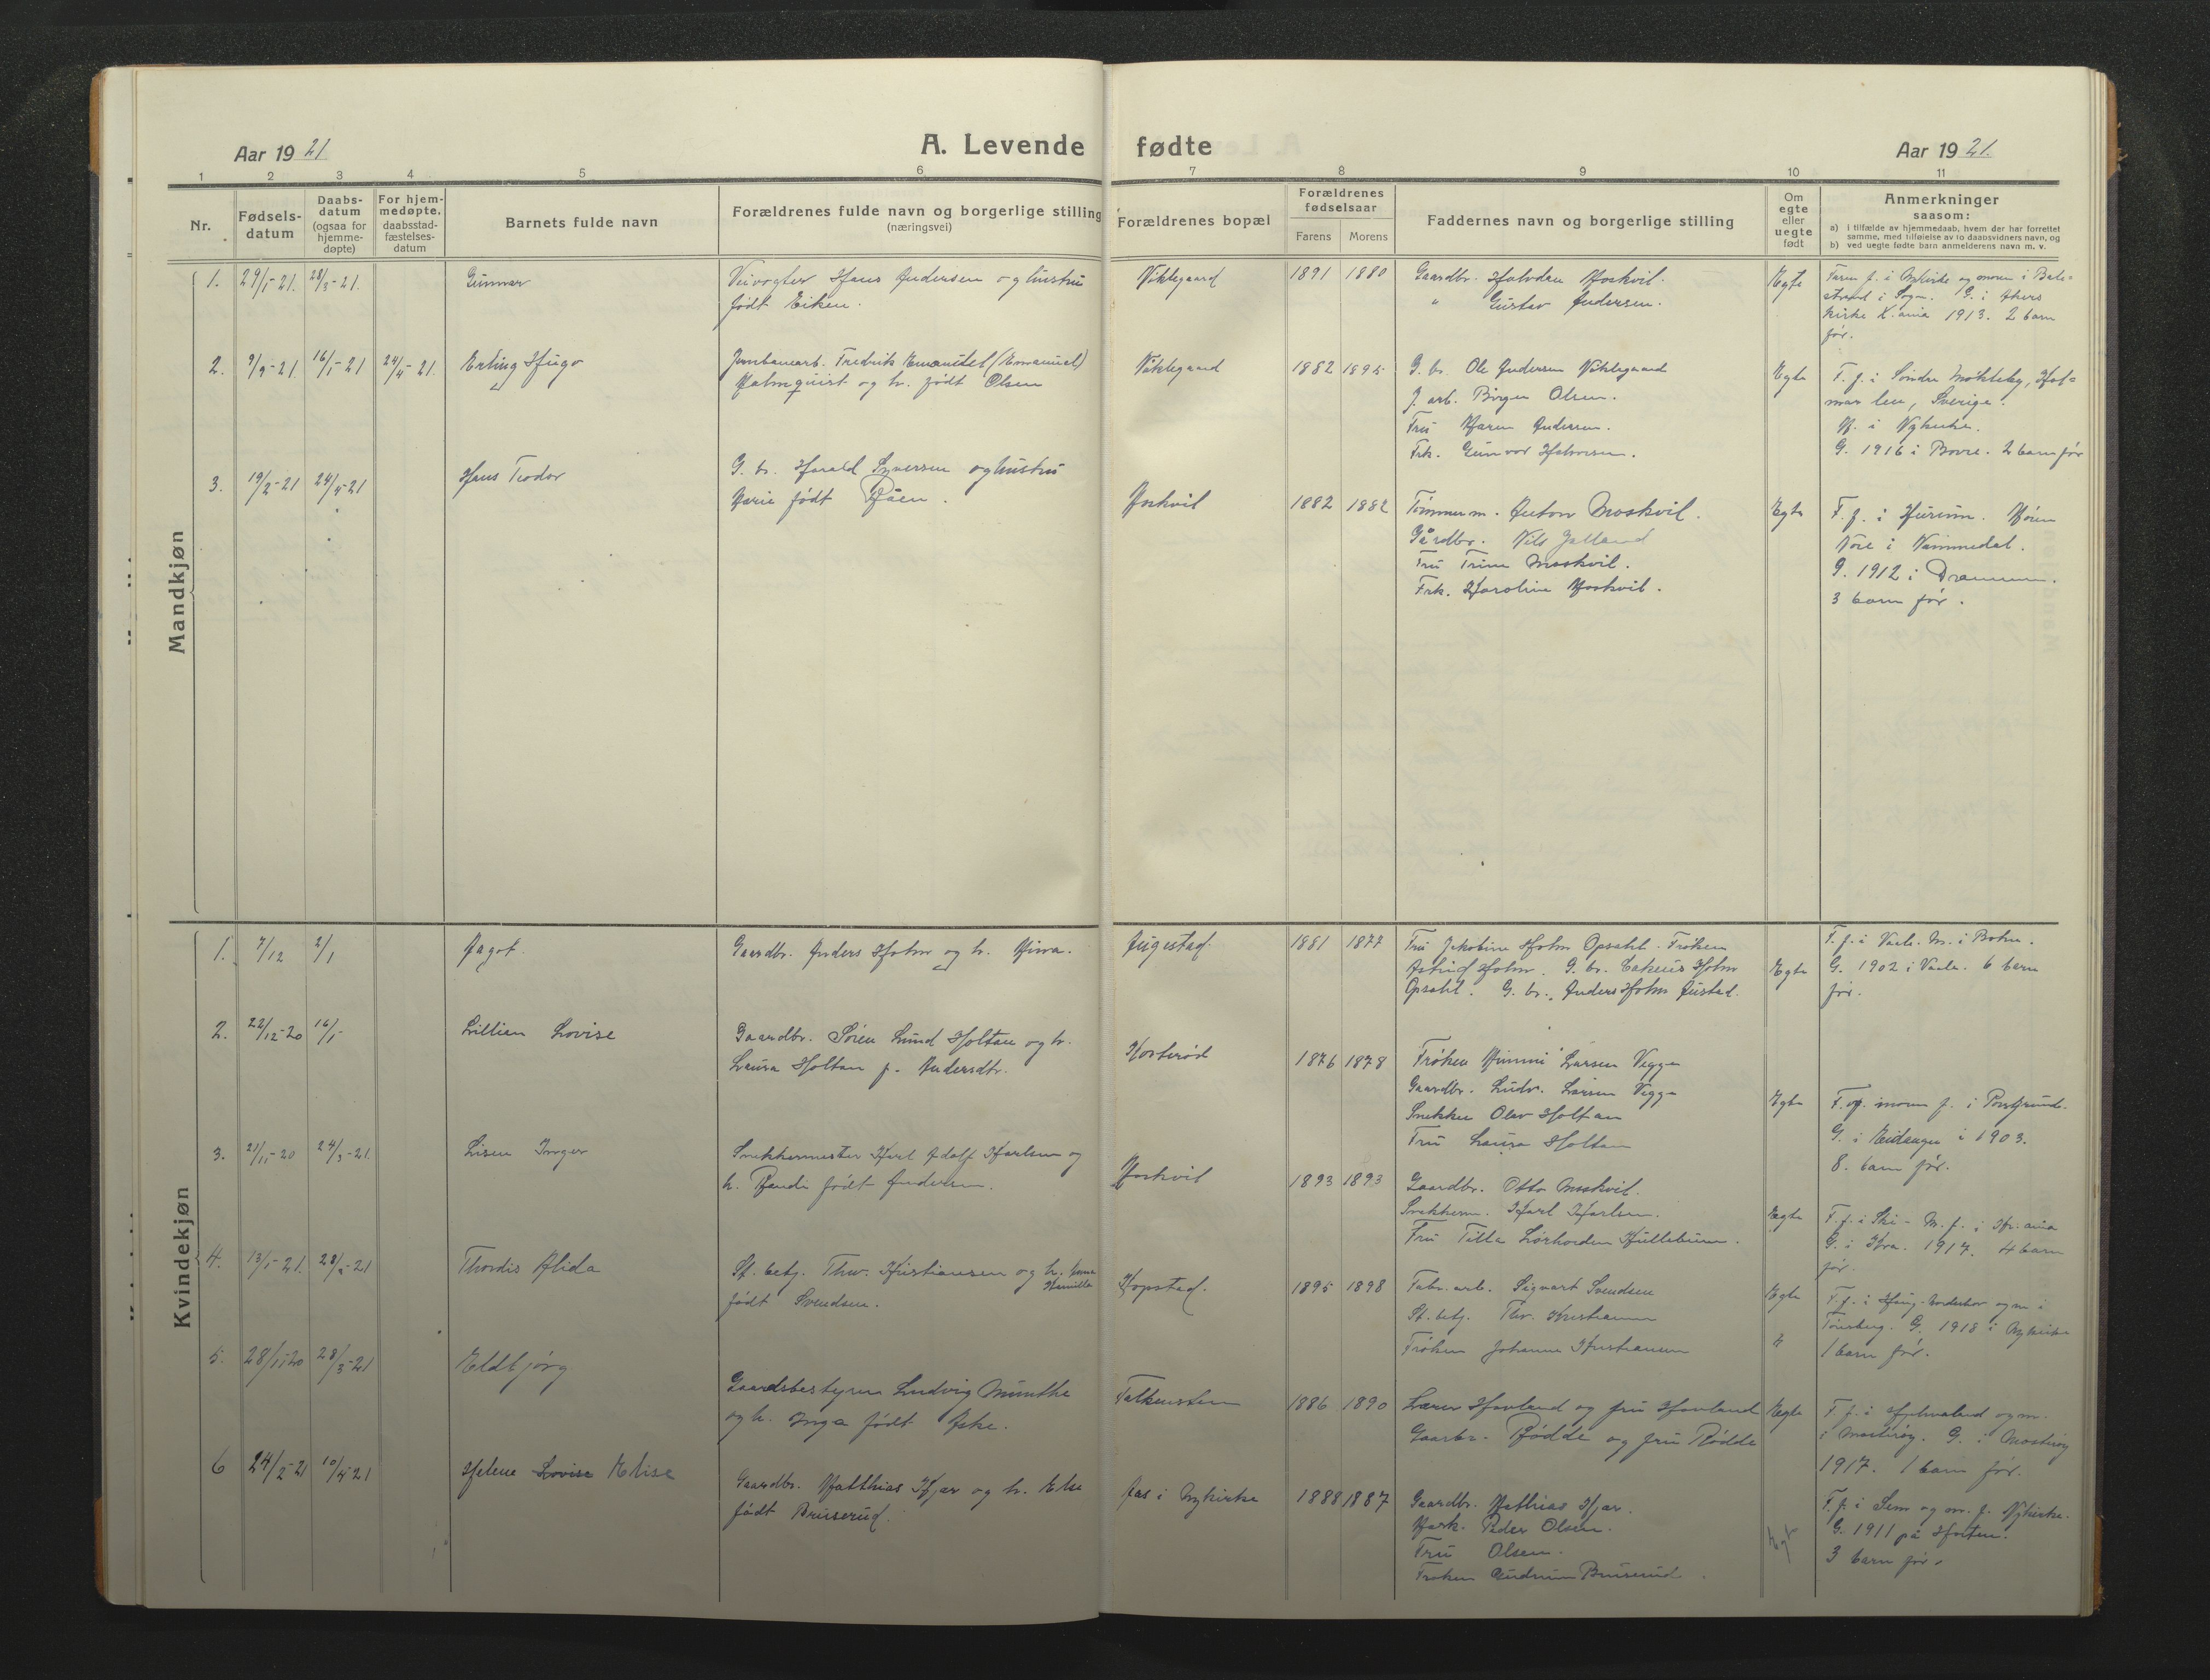 Aar 1921
A. Levende fødte
Aar 1921.
1 2 3 4 5 6 7 8 9 10 11
Nr.
Fødsels-
datum
Daabs-
datum
(ogsaa for
hjemme-
døpte)
For hjem-
medøpte,
daabsstad-
fæstelses-
datum
Barnets fulde navn
Forældrenes fulde navn og borgerlige stilling
(næringsvei)
Forældrenes bopæl
Forældrenes
fødselsaar
Farens Morens
Faddernes navn og borgerlige stilling
Om
egte
eller
uegte
født
Anmerkninger
saasom:
a) i tilfælde av hjemmedaab, hvem der har forrettet
samme, med tilføielse av to daabsvidners navn, og
b) ved uegte fødte barn anmelderens navn m. v.
Mandkjøn
1. 29/1-21. 28/3-21.
Gunnar
Veivogter Hans Andersen og hustru
født Eiken.
Viklegaard
1891 1880
Gaardbr. Halvdan Moskvil.
" Gustav Andersen.
Egte
Faren f. i Nykirke og moren i Bale=
strand i Sogn. G. i Akers
kirke K.ania 1913. 2 barn
før.
2. 16/1-21 24/4-21.
Erling Hugo
Jernbanearb. Fredrik Emanuel (Emanuel)
Malmquist og h. født Olsen
Viklegaard
1882 1895
G. br. Ole Andersen Viklegaard
J. arb. Birger Olsen.
Fru Maren Andersen.
Frk. Gunvor Halvorsen.
Egte
F. f. i Søndre Møkleby, Kal=
mar len, Sverige.
M. i Nykirke.
G. 1916 i Borre. 2 barn før
3. 19/2-21 24/4-21
Hans Teodor
G. br. Harald Syversen og hustru
Marie født Råen.
Moskvil
1882 1882
Tømmerm. Anton Moskvil.
Gårdbr. Nils Jalland
Fru Trine Moskvil.
Frk. Karoline Moskvil.
Egte
F. f. i Hurum. Moren
Nore i Nummedal.
G. 1912 i Drammen.
3 barn før.
Kvindekjøn
1. 7/12 2/1
Magot.
Gaardbr. Anders Holm og h. Mina.
Augestad.
1881 1877
Fru Jakobine Holm Opsahl. Frøken
Astrid Holm. G. br. Holm
Opsahl. G. br. Anders Holm Austad.
Egte
F. f. i Vaale. M. i Botne.
G. 1902 i Vaale. 6 barn
før.
2. 22/12-20 16/1-
Lillian Lovise
Gaardbr. Søren Lund Holtan og h.
Laura Holtan f. Andersdtr.
1876 1878
Frøken Mimmi Larsen Vegge
Gaardbr. Ludv. Larsen Vegge
Snekker Olav Holtan
Fru Laura Holtan
Egte
F. og moren f. i Porsgrund.
G. i Eidanger i 1903.
8. barn før.
3. 21/11-20 24/3-21.
Lisen Inger
Snekkermester Karl Adolf Karlsen og
h. Randi født Andersen.
Moskvil
1893 1893
Gaardbr. Otto Moskvil.
Snekkerm. Karl Karlsen.
Fru Tilla
Egte
F. f. i Ski - M. f. i Kr.ania
G. i Kra. 1917. 4 barn
før.
4. 13/1-21. 28/2-21
Thordis Alida
St. betj. Thv. Kristiansen og h. Anna
født Svendsen.
Kopstad.
1895 1898
Fabr. arb. Sigvart Svendsen
St. betj. Thv. Kristiansen
Frøken Johanne Kristiansen
Egte
F. f. i og m. i
Tønsberg. G. 1918 i Nykirke
1 barn før.
5. 28/11-20 28/3-21
Eldbjørg
Gaardsbestyrer Ludvig Munthe
og h. Inga født Aske.
Falkensten
1886 1890
Lærer Hovland og fru Hovland
Gaardbr. Rødde og fru Rødde
Egte
F. f. i og m.
i Mosterøy. G. i Mosterøy
1917. 1 barn før.
6 24/2-21 10/4-21
Helene Lovise Elise
Gaardbr. Matthias Kjær og h. Else
født Bruserud.
Aas i Nykirke
1888 1887
Gaardbr. Mathias Kjær.
Mask. Peder Olsen.
Fru Olsen.
Frøken Gudrun Bruserud.
Egt
F. f. i Sem og m. f. Nykirke.
G. 1911 på Horten.
3 barn før.